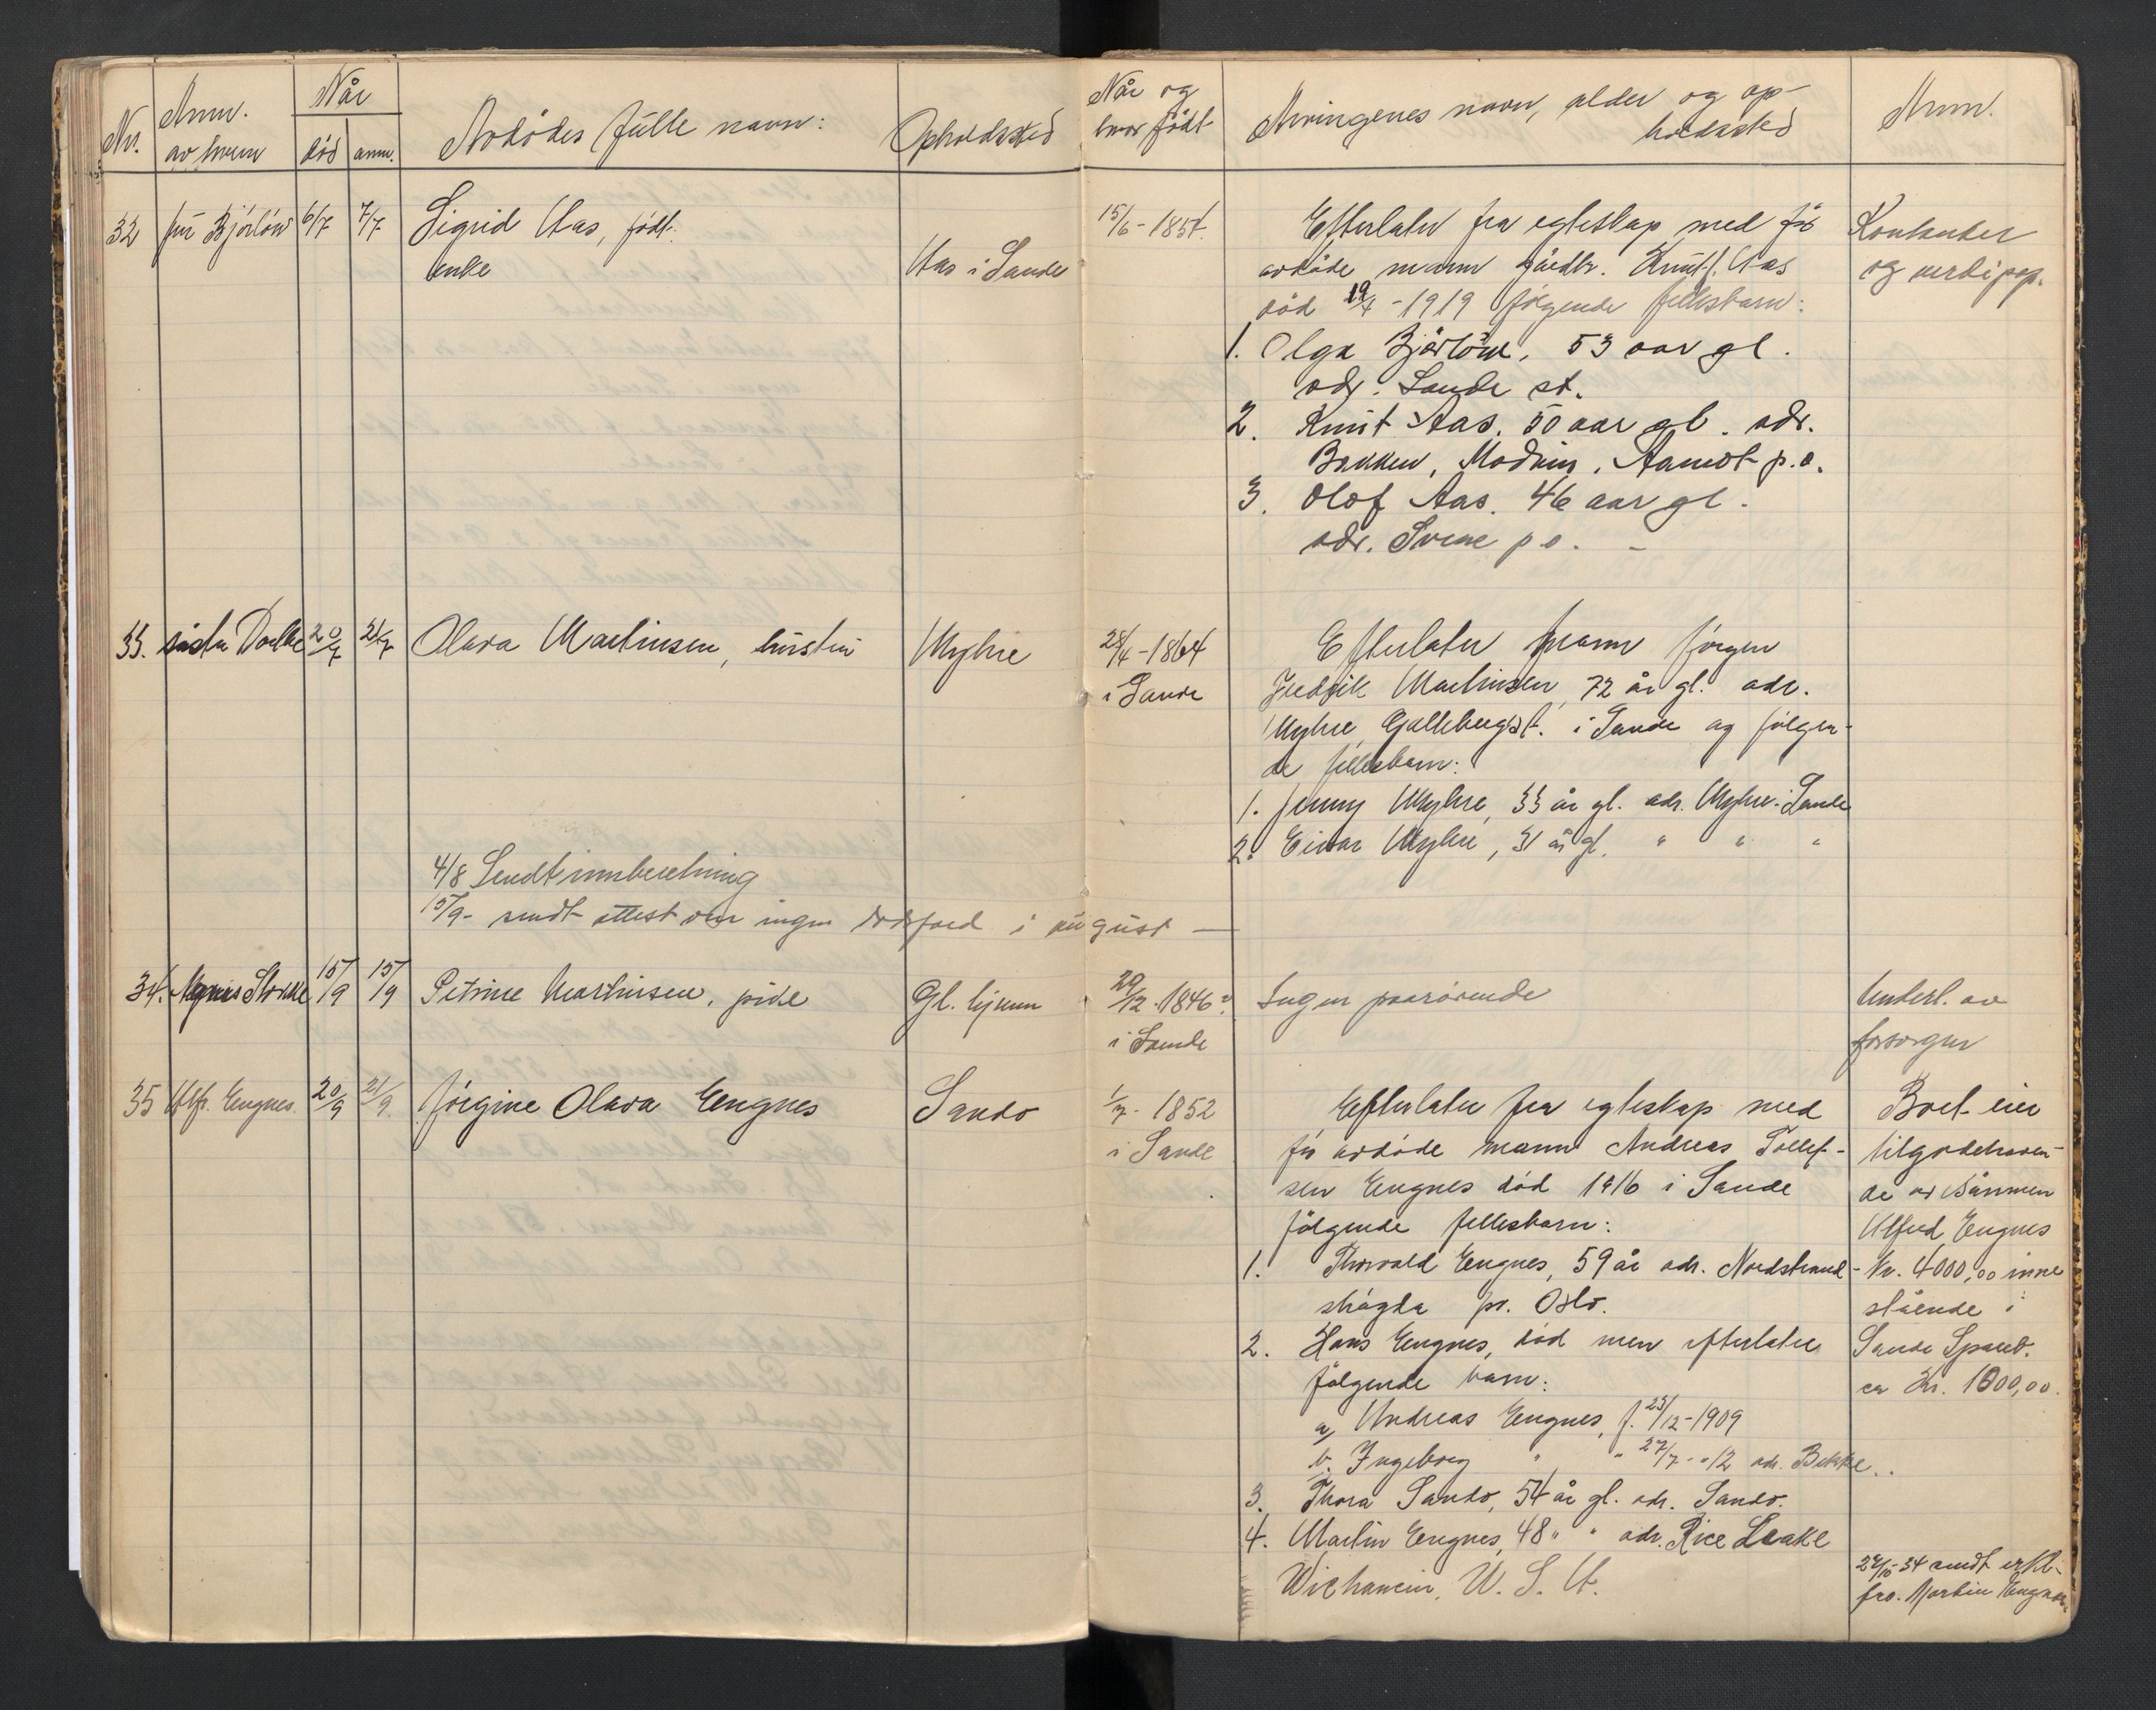 Nr.
Anm. av hvem
Når
død
anm.
Avdødes fulle navn:
Opholdssted
Når og
hvor født
Arvingenes navn, alder og op-
holdssted
Anm.
32
fru Bjørløw
6/7
7/7
Sigrid Aas, født.
enke
Aas i Sande
15/6 - 1854.
Efterlater fra egteskap med før
avdøde mann gårdbr. Knut J. Aas
død 19/4 - 1919 følgende fellesbarn:
1. Olga Bjørløw, 53 aar gl.
adr. Sande st.
2. Knut Aas, 50 aar gl. adr.
Bakken, Modum, Aamot p.o.
3. Olof Aas. 46 aar gl.
adr. Svene p.o. -
Kontanter
og verdipap.
33.
søster Dolke
20/7
21/7
Olava Martinsen, hustru
Myhre
28/4 - 1864
i Sande
Efterlater mann Jørgen
Fredrik Martinsen, 72 år gl. adr.
Myhre, Galleberg st. i Sande og følgen-
de fellesbarn:
1. Jenny Myhre, 33 år gl. adr. Myhre i Sande
2. Einar Myhre, 31 år gl. " " "
4/8 Sendt innberetning
15/9 - sendt attest om ingen dødsfald i august —
34.
Agnes Stokke
15/9
15/9
Petrine Martinsen, pike
Gl. hjem
29/12 - 1846
i Sande
Ingen paarørende
Underl. av
forsorgen
35
Alfr. Engnes.
20/9
21/9
Jørgine Olava Engnes
Sando
1/7 - 1852
i Sande
Efterlater fra egteskap med
før avdøde mann Andreas Tollef-
sen Engnes død 1916 i Sande
følgende fellesbarn:
1. Thorvald Engnes, 59 år adr. Nordstrand-
shøgda pr. Oslo.
2. Hans Engnes, død men efterlater
følgende barn:
a, Andreas Engnes, f. 23/12 - 1909
b. Ingeborg " " 27/7 - "12 adr. Bekke..
3. Thora Sando, 54 år gl. adr. Sando.
4. Martin Engnes, 48 " " adr. Rice Leake
Wichancin, U. S. A.
Boet eier
tilgodehaven-
de av sønnen
Alfred Engnes
Kr. 4000,00 inne
stående i
Sande Spareb.
ca Kr. 1000,00.
29/10-34 sendt erkl.
fra Martin Engnes.